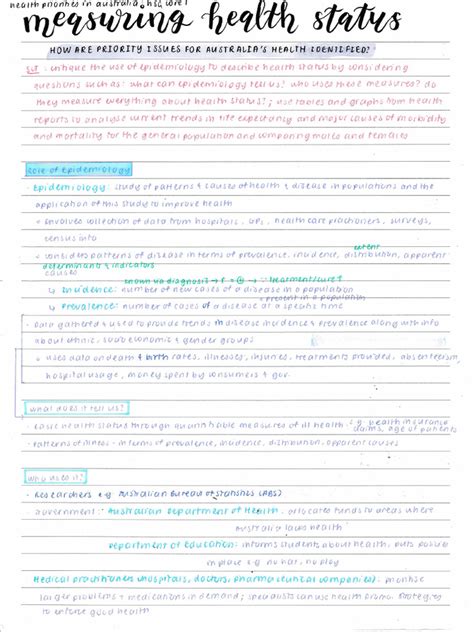 health priorities in australia, hsc core 1
measuring health status
HOW ARE PRIORITY ISSUES FOR AUSTRALIA'S HEALTH IDENTIFIED?
critique the use of epidemiology to describe health status by considering
questions such as: what can epidemiology tell us? who uses these measures? do
they measure everything about health status?; use tables and graphs from health
reports to analyse current trends in life expectancy and major causes of morbidity
and mortality for the general population and comparing males and females
role of epidemiology
- Epidemiology: study of patterns & causes of health & disease in populations and the
application of this study to improve health
o involves collection of data from hospitals, GPs, health care practioners, surveys,
census info
extent
o considers patterns of disease in terms of prevalence, incidence, distribution, apparent
causes.
determinants & indicators
known via diagnosis → treatment/cure?
↳ Incidence: number of new cases of a disease in a population
present in a population
↳ Prevalence: number of cases of a disease at a specific time
- Data gathered & used to provide trends in disease incidence & prevalence along with info
about ethnic, socio economic & gender groups
o uses data on death & birth rates, illnesses, injuries, treatments provided, absenteeism,
hospital usage, money spent by consumers & gov.
what does it tell us?
- basic health status through quantifiable measures of ill health
e.g. health insurance
claims, age of patients
- Patterns of illness - in terms of prevalence, incidence, distribution, apparent causes
who uses it?
- Researchers e.g Australian Bureau of Statistics (ABS)
- Government: Australian Department of Health: allocates funds to areas where
Australia lacks health
Department of Education: informs students about health, puts policies
in place e.g no hat, no play
- Medical practitioners (hospitals, doctors, pharmaceutical companies):
larger problems & medications in demand; specialists can use health promo. strategies
to enforce good health